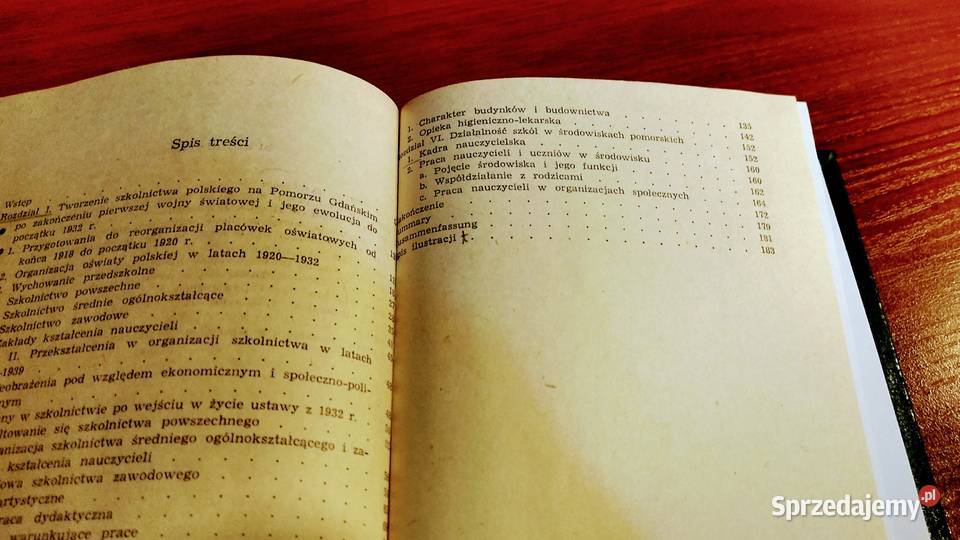 Spis treści
Wstęp
Rozdział I. Tworzenie szkolnictwa polskiego na Pomorzu Gdańskim
po zakończeniu pierwszej wojny światowej i jego ewolucja do
początku 1932 r.
1. Przygotowania do reorganizacji placówek oświatowych od
końca 1918 do początku 1920 r.
2. Organizacja oświaty polskiej w latach 1920—1932
Wychowanie przedszkolne
Szkolnictwo powszechne
Szkolnictwo średnie ogólnokształcące
Szkolnictwo zawodowe
Zakłady kształcenia nauczycieli
II. Przekształcenia w organizacji szkolnictwa w latach
—1939
eobrażenia pod względem ekonomicznym i społeczno-poli-
nym
ny w szkolnictwie po wejściu w życie ustawy z 1932 r.
ltowanie się szkolnictwa powszechnego
anizacja szkolnictwa średniego ogólnokształcącego i za-
kształcenia nauczycieli
owa szkolnictwa zawodowego
artystyczne
raca dydaktyczna
warunkujące pracę
1. Charakter budynków i budownictwa 135
2. Opieka higieniczno-lekarska 142
ozdział VI. Działalność szkół w środowiskach pomorskich 152
1. Kadra nauczycielska 152
2. Praca nauczycieli i uczniów w środowisku 160
a. Pojęcie środowiska i jego funkcji 160
b. Współdziałanie z rodzicami 162
c. Praca nauczycieli w organizacjach społecznych 164
akończenie 172
ummary 179
usammenfassung 181
pis ilustracji 183
Sprzedajemy.pl